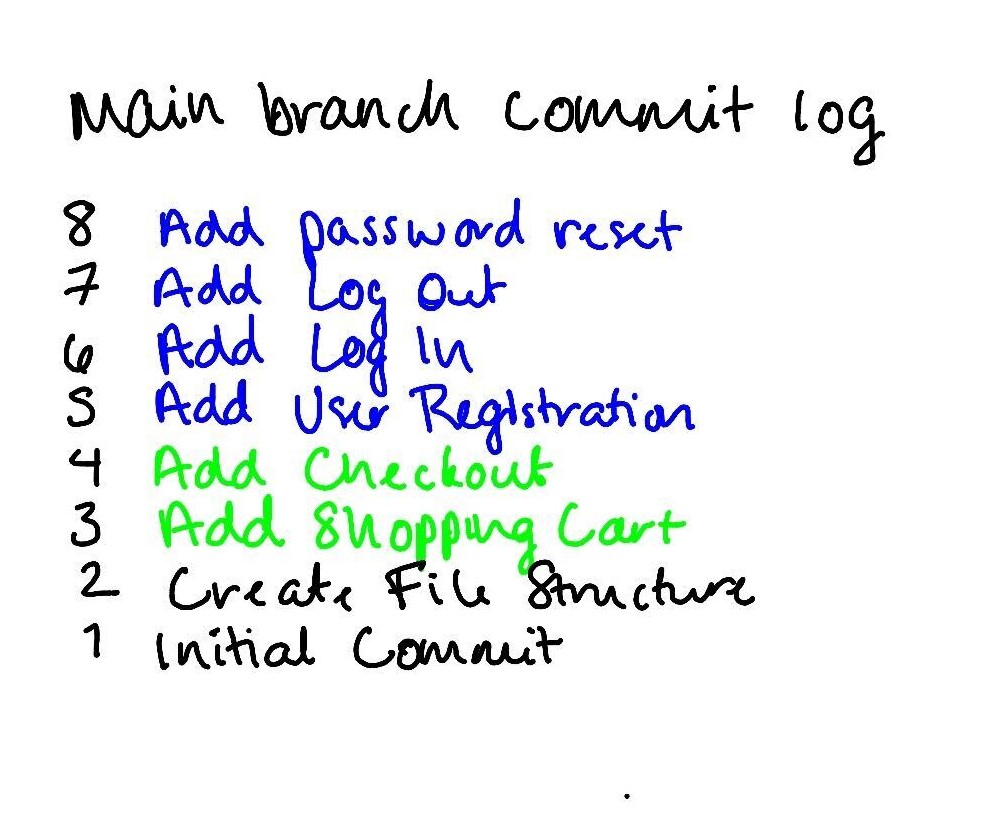 Main branch commit log
8 Add password reset
7 Add Log Out
6 Add Log In
5 Add User Registration
4 Add Checkout
3 Add Shopping Cart
2 Create File Structure
1 Initial Commit